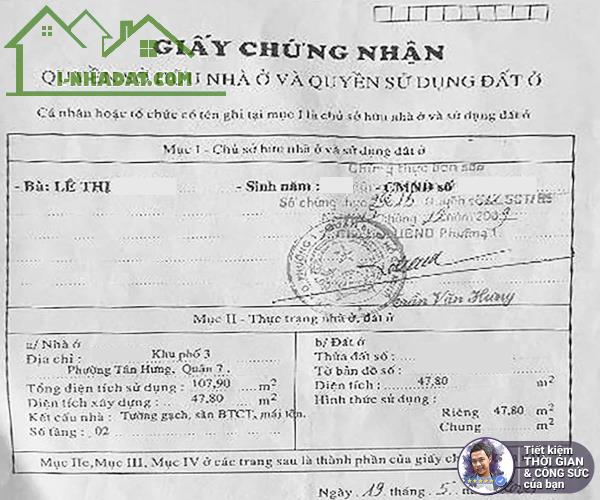 GIẤY CHỨNG NHẬN
QUYỀN SỞ HỮU NHÀ Ở VÀ QUYỀN SỬ DỤNG ĐẤT Ở
I-NHADAT.COM
Cá nhân hoặc tổ chức có tên ghi tại mục I là chủ sở hữu nhà ở và sử dụng đất ở
Mục I - Chủ sở hữu nhà ở và sử dụng đất ở
Chứng thực bản sao
- Bà: LÊ THỊ - Sinh năm : - CMND số
Số chứng thực Quyển số SCT/BS
tháng 12 năm 2009
UBND Phường 1
Trần Văn Hưng
Mục II - Thực trạng nhà ở, đất ở
a/ Nhà ở
Địa chỉ : Khu phố 3
Phường Tân Hưng, Quận 7.
Tổng diện tích sử dụng : 107,90 m2
Diện tích xây dựng : 47.80 m2
Kết cấu nhà : Tường gạch, sàn BTCT, mái tôn.
Số tầng : 02
b/ Đất ở
Thửa đất số :
Tờ bản đồ số :
Diện tích : 47.80 m2
Hình thức sử dụng :
Riêng 47,80 m2
Chung m2
Mục IIc, Mục III, Mục IV ở các trang sau là thành phần của giấy
Ngày 19 tháng 5
Tiết kiệm
THỜI GIAN
& CÔNG SỨC
của bạn